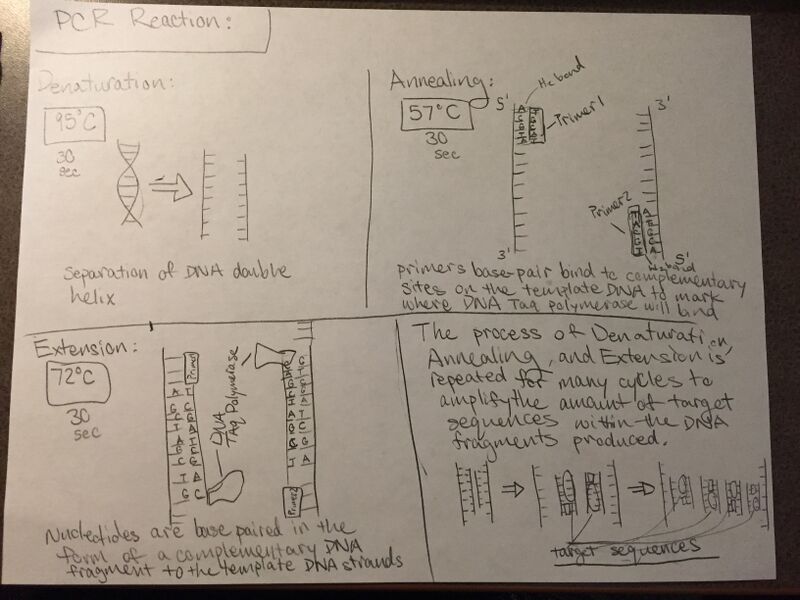 PCR Reaction:
Denaturation:
95°C
30
sec
separation of DNA double
helix
Annealing:
57°C
30
sec
5'
H₂ bond
Primer 1
3'
3'
Primer 2
5'
H₂ bond
primers base-pair bind to complementary
sites on the template DNA to mark
where DNA Taq polymerase will bind
Extension:
72°C
30
sec
Primer
DNA
TAq Polymerase
Primer2
Nucleotides are base paired in the
form of a complementary DNA
fragment to the template DNA strands
The process of Denaturation,
Annealing, and Extension is
repeated for many cycles to
amplify the amount of target
sequences within the DNA
fragments produced.
target sequences